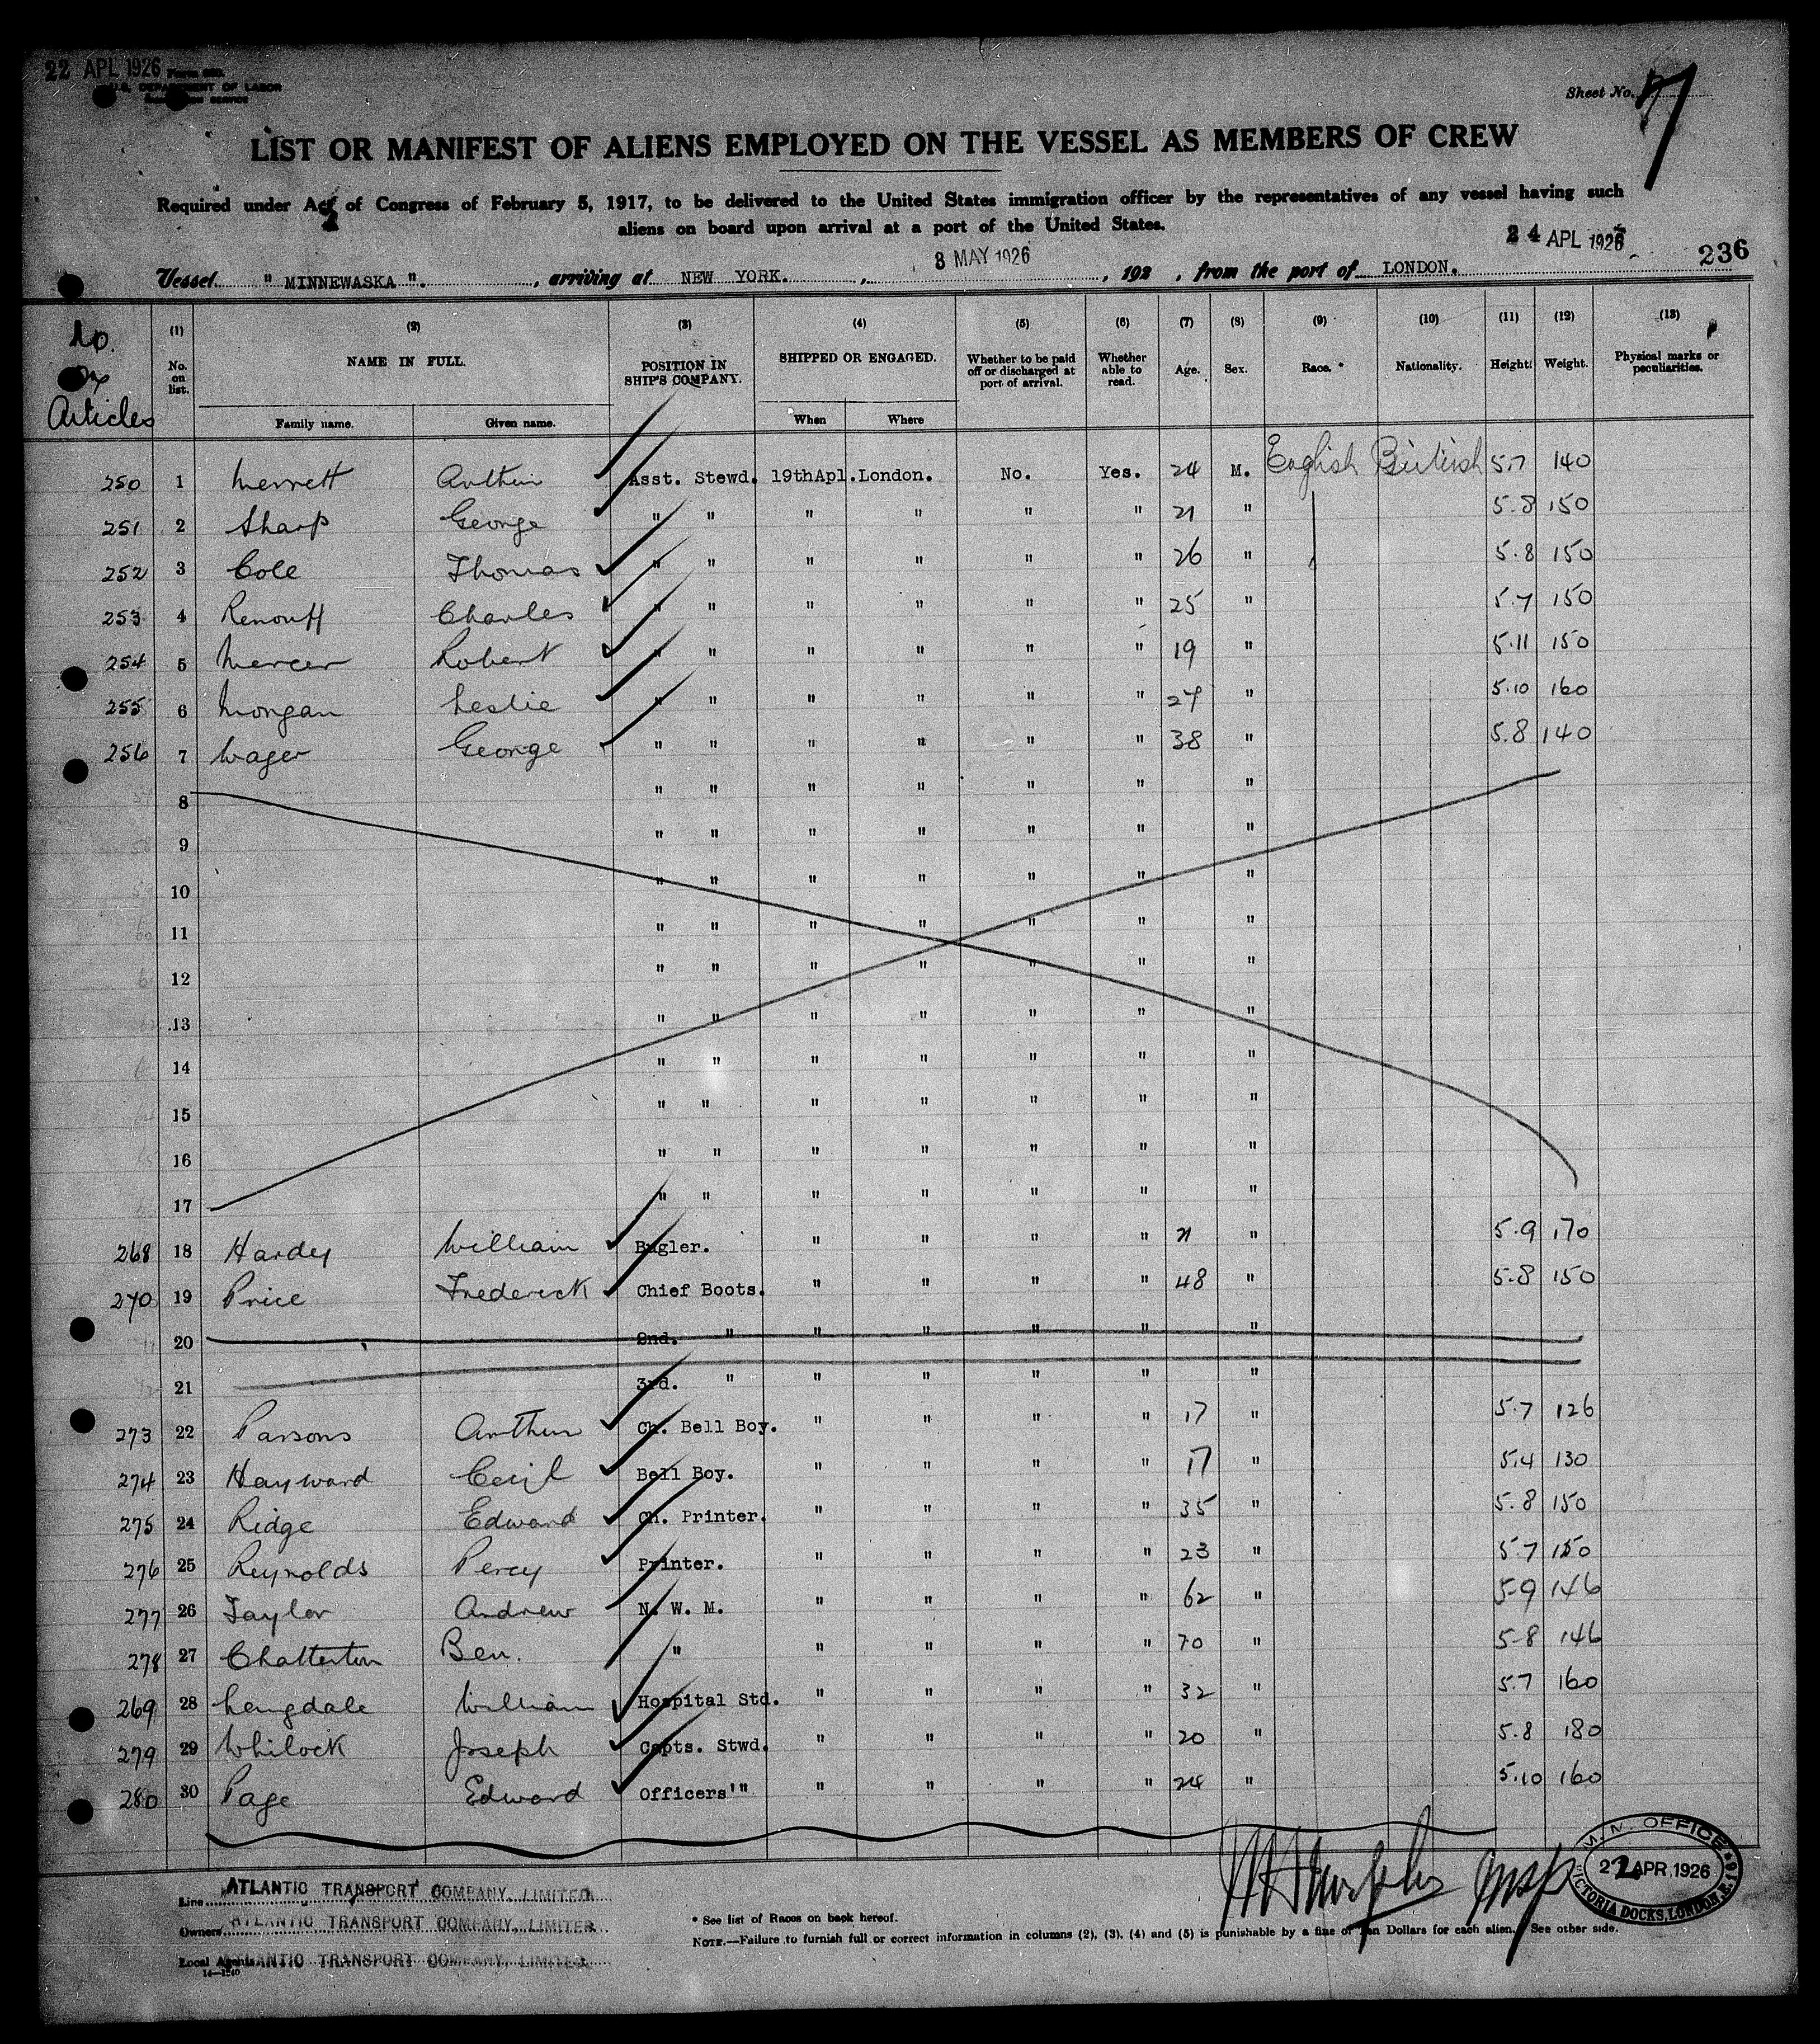 22 APL 1926 Form 680
U.S. DEPARTMENT OF LABOR
IMMIGRATION SERVICE
Sheet No. 7
LIST OR MANIFEST OF ALIENS EMPLOYED ON THE VESSEL AS MEMBERS OF CREW
Required under Act of Congress of February 5, 1917, to be delivered to the United States immigration officer by the representatives of any vessel having such
aliens on board upon arrival at a port of the United States.
24 APL 1926
236
Vessel " MINNEWASKA ". , arriving at NEW YORK. , 3 MAY 1926 , 192 , from the port of LONDON.
No. on Articles
(1) (2) (3) (4) (5) (6) (7) (8) (9) (10) (11) (12) (13)
No. on list. NAME IN FULL. POSITION IN SHIP'S COMPANY. SHIPPED OR ENGAGED. Whether to be paid off or discharged at port of arrival. Whether able to read. Age. Sex. Race. * Nationality. Height. Weight. Physical marks or peculiarities.
Family name. Given name. When Where
250 1 Merrett Arthur Asst. Stewd. 19thApl. London. No. Yes. 24 M. English British 5.7 140
251 2 Sharp George " " " " " " 21 " 5.8 150
252 3 Cole Thomas " " " " " " 26 " 5.8 150
253 4 Renouff Charles " " " " " " 25 " 5.7 150
254 5 Mercer Robert " " " " " " 19 " 5.11 150
255 6 Morgan Leslie " " " " " " 27 " 5.10 160
256 7 Wager George " " " " " " 38 " 5.8 140
8 " " " " " " "
9 " " " " " " "
10 " " " " " " "
11 " " " " " " "
12 " " " " " " "
13 " " " " " " "
14 " " " " " " "
15 " " " " " " "
16 " " " " " " "
17 " " " " " " "
268 18 Hardy William Bugler. " " " " 21 " 5.9 170
270 19 Price Frederick Chief Boots. " " " " 48 " 5.8 150
20 2nd. " " " " " "
21 3rd. " " " " " "
273 22 Parsons Arthur Ch. Bell Boy. " " " " 17 " 5.7 126
274 23 Hayward Cecil Bell Boy. " " " " 17 " 5.4 130
275 24 Ridge Edward Ch. Printer. " " " " 35 " 5.8 150
276 25 Reynolds Percy Printer. " " " " 23 " 5.7 150
277 26 Taylor Andrew N. W. M. " " " " 62 " 5-9 146
278 27 Chatterton Ben. " " " " " 70 " 5-8 146
269 28 Langdale William Hospital Std. " " " " 32 " 5.7 160
279 29 Whilock Joseph Capts. Stwd. " " " " 20 " 5.8 180
280 30 Page Edward Officers' " " " " " 24 " 5.10 160
Line ATLANTIC TRANSPORT COMPANY, LIMITED.
Owners ATLANTIC TRANSPORT COMPANY, LIMITED.
Local Agents ATLANTIC TRANSPORT COMPANY, LIMITED.
* See list of Races on back hereof.
NOTE.—Failure to furnish full or correct information in columns (2), (3), (4) and (5) is punishable by a fine of Ten Dollars for each alien. See other side.
M. M. OFFICE
22 APR 1926
VICTORIA DOCKS, LONDON, E. 16